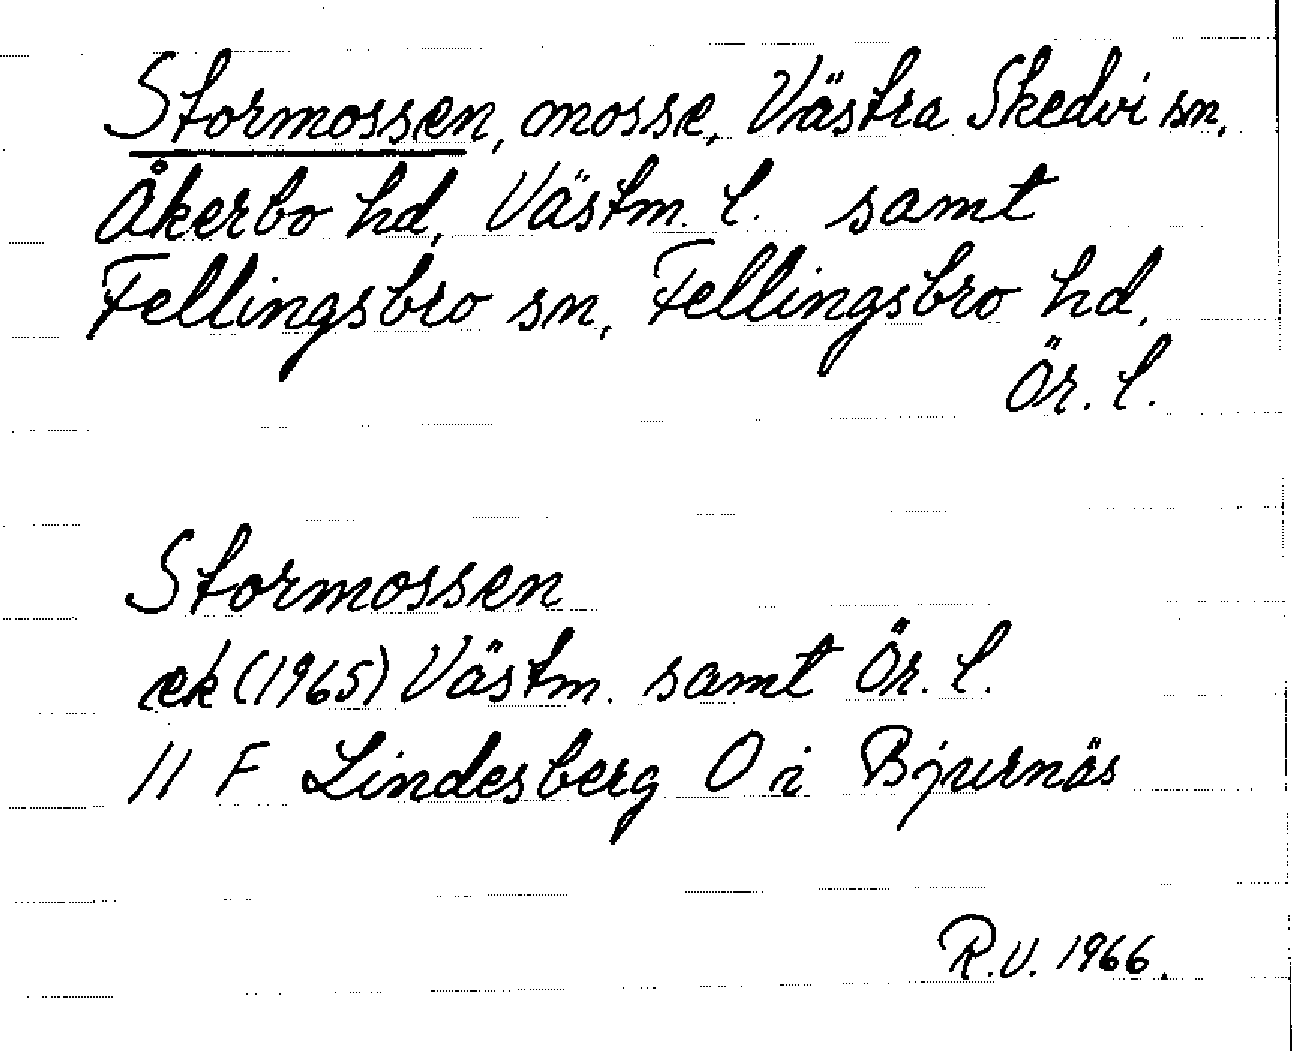 Stormossen, mosse, Västra Skedvi sn,
Åkerbo hd, Västm. l. samt
Fellingsbro sn, Fellingsbro hd,
Ör. l.
Stormossen
ek (1965) Västm. samt Ör. l.
11 F Lindesberg O i Bjurnäs
R.V. 1966.